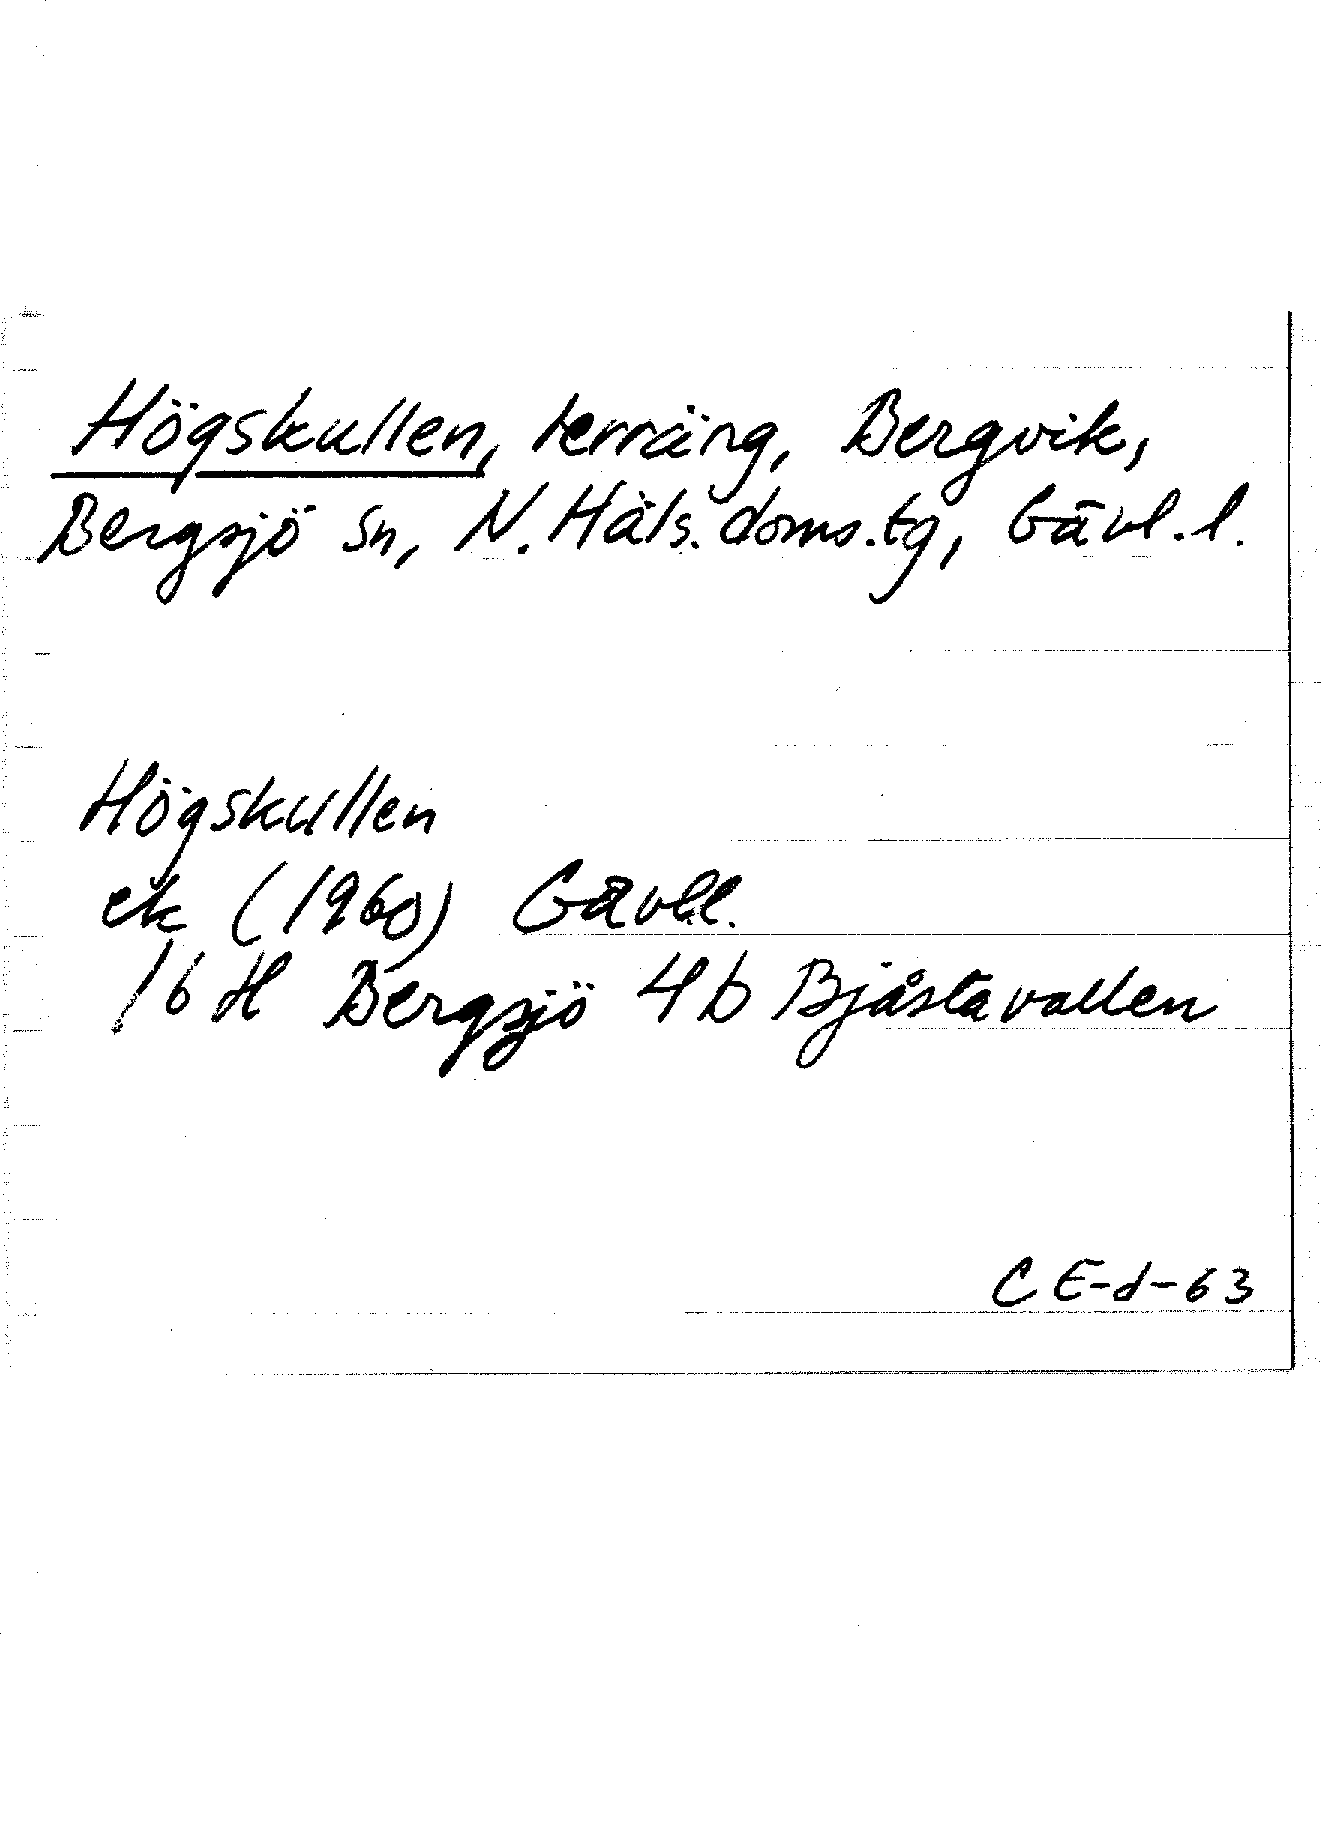 Högskullen, terräng, Bergvik,
Bergsjö sn, N. Häls. doms.tg, Gävl. l.
Högskullen
ek (1960) Gävl.l.
16 H Bergsjö 4b Bjåstavallen
CE-d-63